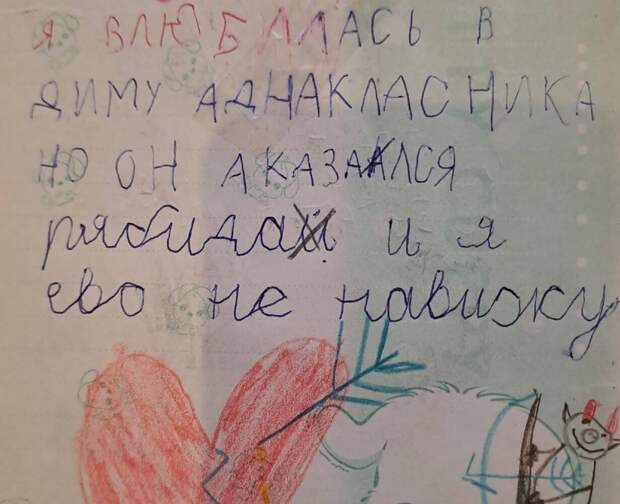 я влюбилась в
диму аднакласника
но он аказался
рябида и я
ево не навижу